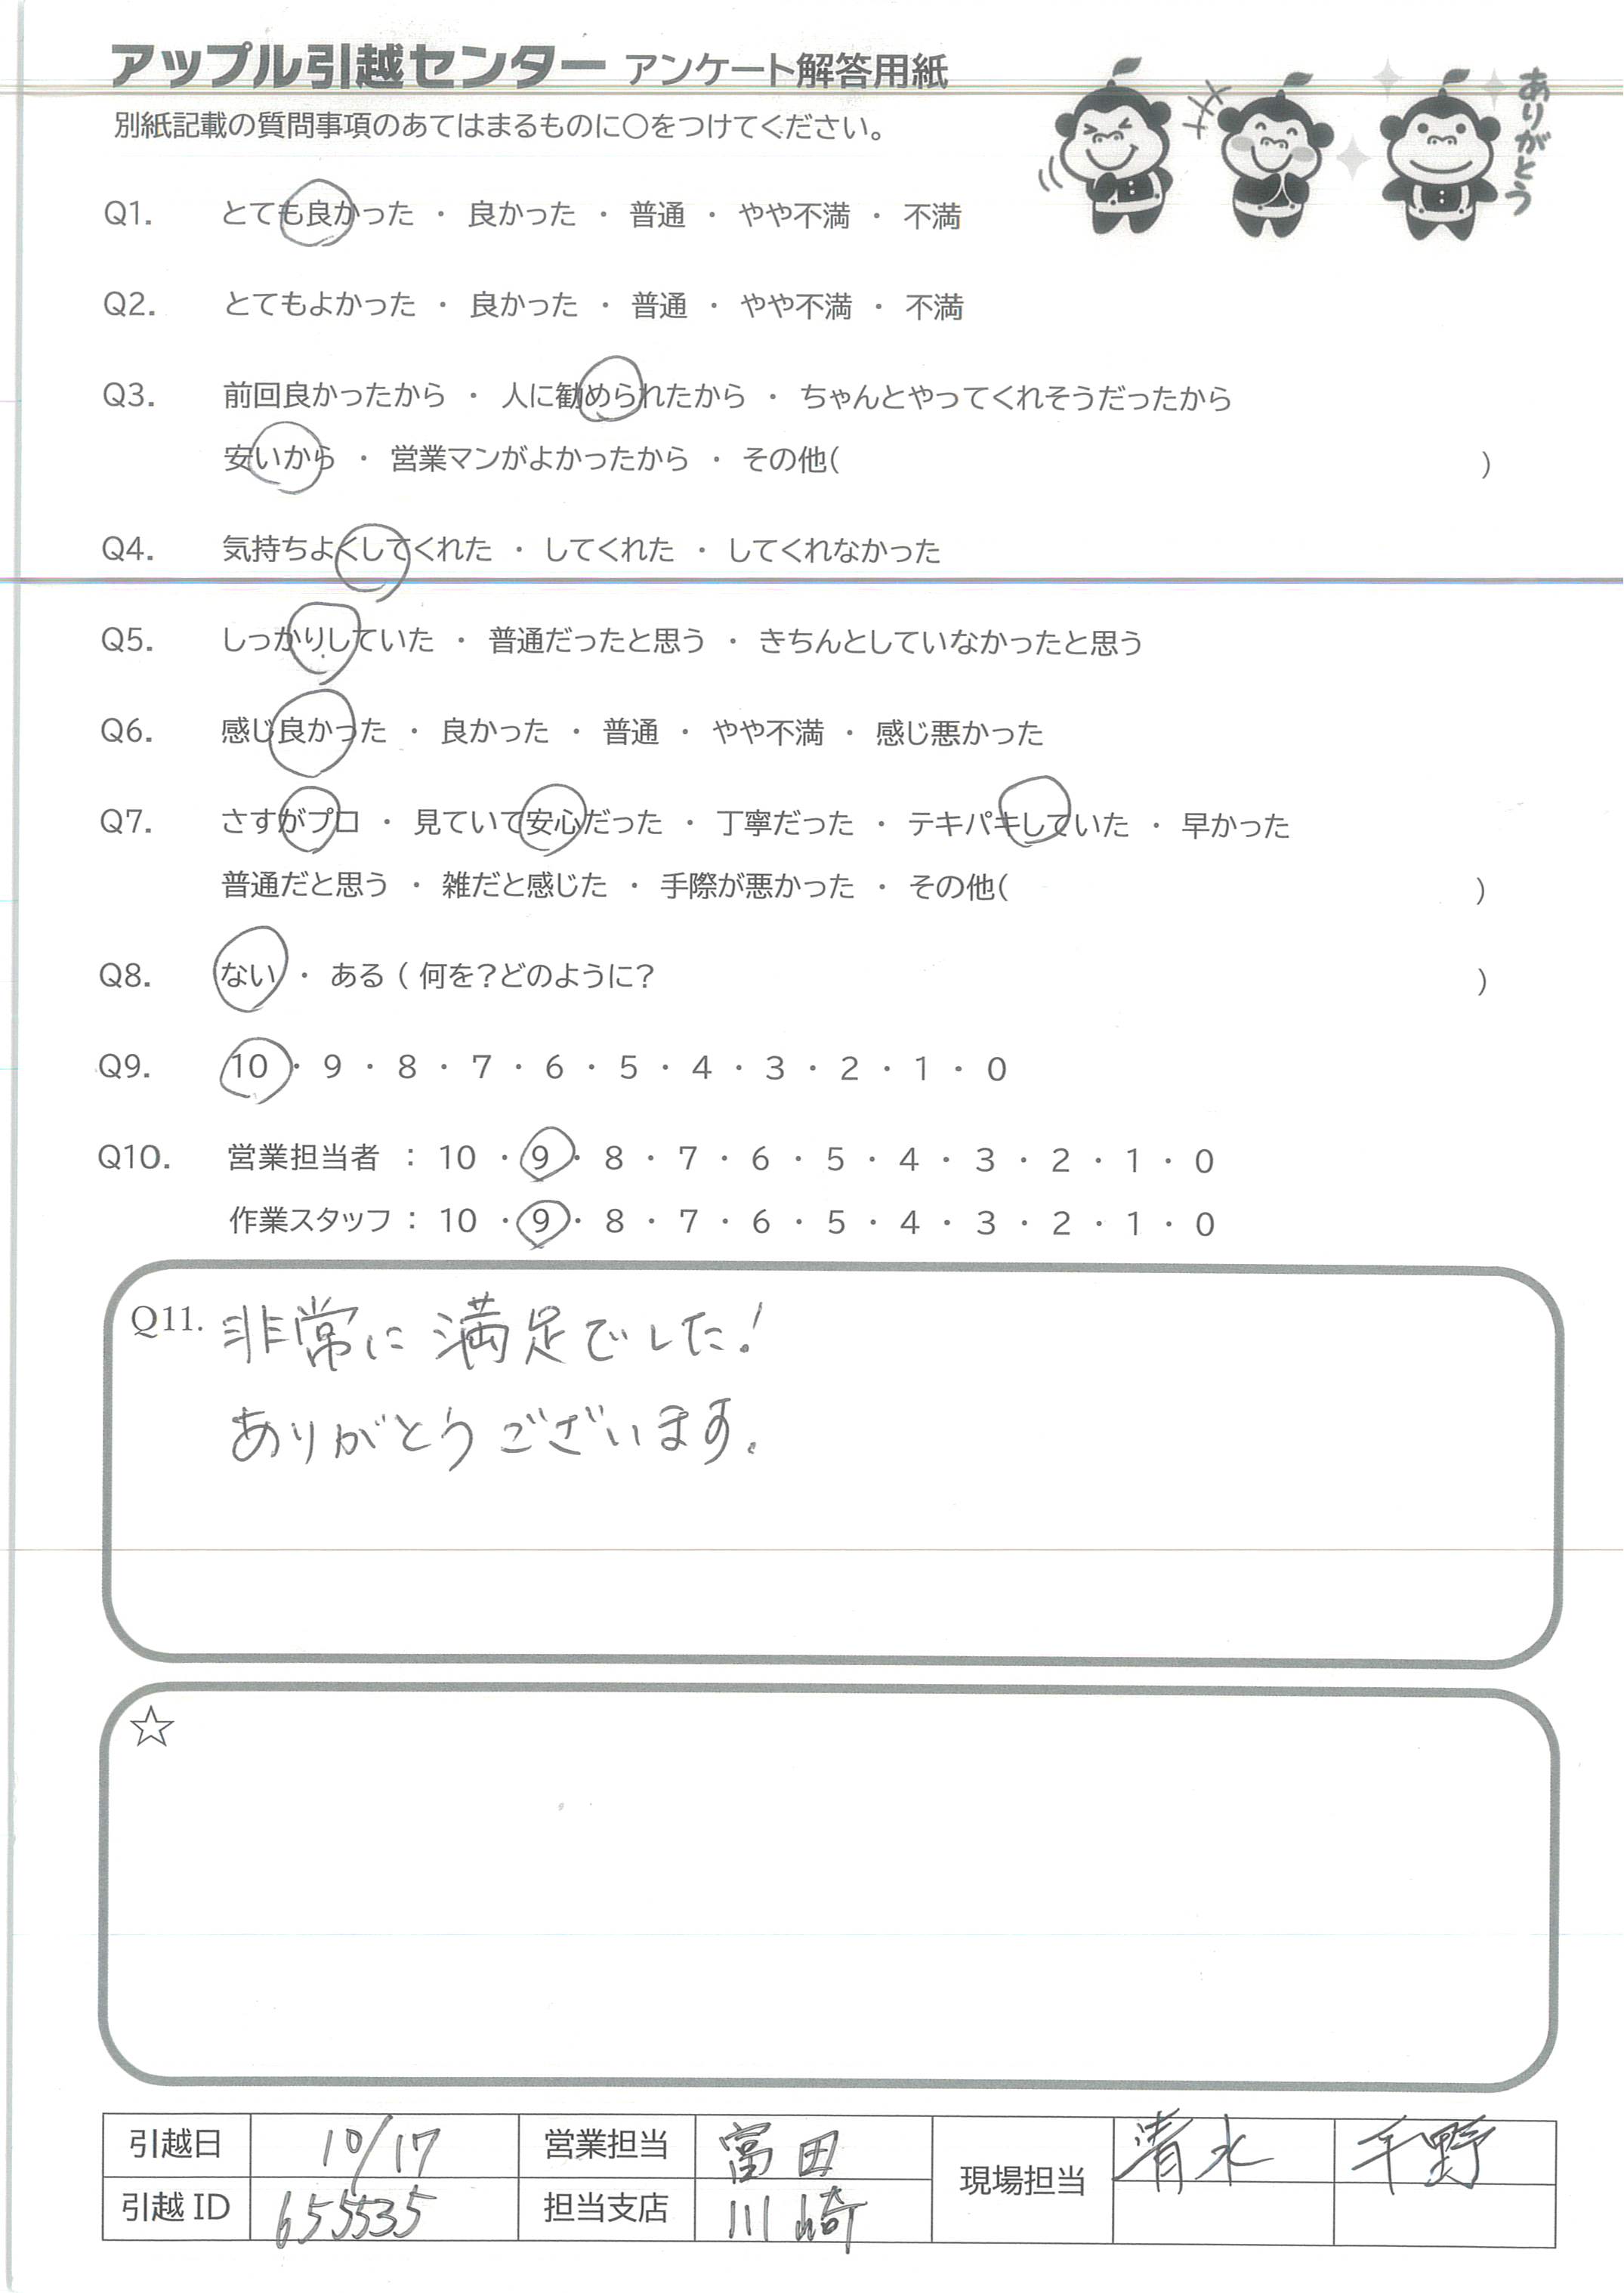 アップル引越センター アンケート解答用紙
ありがとう
別紙記載の質問事項のあてはまるものに○をつけてください。
Q1. とても良かった ・ 良かった ・ 普通 ・ やや不満 ・ 不満
Q2. とてもよかった ・ 良かった ・ 普通 ・ やや不満 ・ 不満
Q3. 前回良かったから ・ 人に勧められたから ・ ちゃんとやってくれそうだったから
安いから ・ 営業マンがよかったから ・ その他( )
Q4. 気持ちよくしてくれた ・ してくれた ・ してくれなかった
Q5. しっかりしていた ・ 普通だったと思う ・ きちんとしていなかったと思う
Q6. 感じ良かった ・ 良かった ・ 普通 ・ やや不満 ・ 感じ悪かった
Q7. さすがプロ ・ 見ていて安心だった ・ 丁寧だった ・ テキパキしていた ・ 早かった
普通だと思う ・ 雑だと感じた ・ 手際が悪かった ・ その他( )
Q8. ない ・ ある ( 何を?どのように? )
Q9. 10 ・ 9 ・ 8 ・ 7 ・ 6 ・ 5 ・ 4 ・ 3 ・ 2 ・ 1 ・ 0
Q10. 営業担当者 : 10 ・ 9 ・ 8 ・ 7 ・ 6 ・ 5 ・ 4 ・ 3 ・ 2 ・ 1 ・ 0
作業スタッフ : 10 ・ 9 ・ 8 ・ 7 ・ 6 ・ 5 ・ 4 ・ 3 ・ 2 ・ 1 ・ 0
Q11. 非常に満足でした!
ありがとうございます。
☆
引越日 10/17 営業担当 富田 現場担当 清水 千野
引越ID 655535 担当支店 川崎